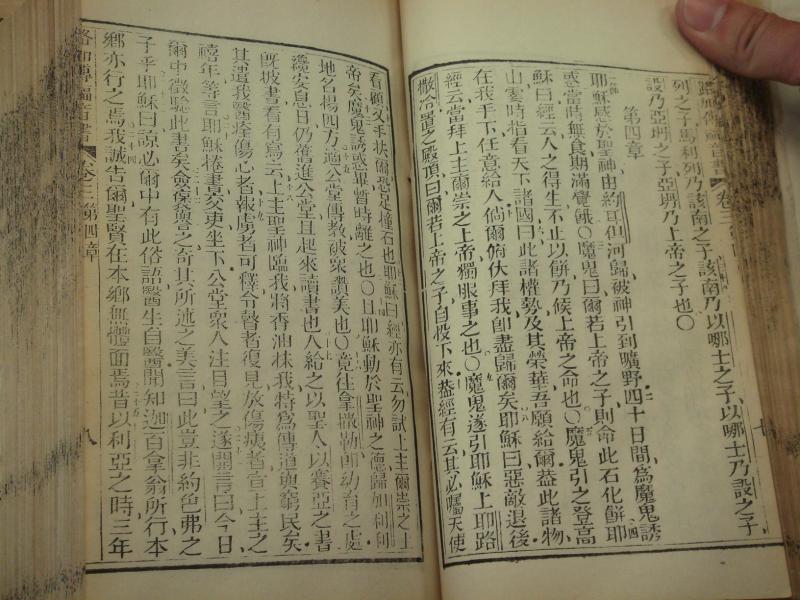 列之子馬利列乃該南之子該南乃以哪士之子以哪士乃設之子
設乃亞坍之子亞坍乃上帝之子也○
第四章
耶穌感於聖神由約耳但河歸被神引到曠野四十日間爲魔鬼誘
惑當時無食期滿覺餓○魔鬼曰爾若上帝之子則命此石化餅耶
穌曰經云人之得生不止以餅乃候上帝之命也○魔鬼引之登高
山霎時指看天下諸國曰此諸權勢及其榮華吾願給爾葢此諸物
在我手下任意給人倘爾俯伏拜我卽盡歸爾矣耶穌曰惡敵退後
經云當拜上主爾崇之上帝獨服事之也○魔鬼遂引耶穌上耶路
撒冷置之殿頂曰爾若上帝之子自投下來葢經有云其必囑天使
看顧 手扶爾恐足撞石也耶穌曰經亦有云勿試上主爾崇之上
帝矣魔鬼誘惑畢暫時離之也○且耶穌動於聖神之德歸加利利
地名揚四方 公堂傳教被衆讚美也○竟往拿撒勒卽幼育之處
纔安息日仍舊進公堂且起來讀書也人給之以聖人以賽亞之書
旣披書看有寫云上主聖神臨我將香油抹我特爲傳道與窮民矣
其遣我醫痊傷心者報虜者可釋令瞽者復見放傷痍者宣上主之
禧年等言耶穌捲書交吏坐下公堂衆人注目望之遂開言曰今日
爾中徵驗此書矣僉 之奇其所述之美言曰此豈非約色弗之
子乎耶穌曰諒必爾中有此俗語醫生自醫聞知迦百拿翁所行本
鄉亦行之焉我誠告爾聖賢在本鄉無體面焉昔以利亞之時三年
路加傳福音書 卷三第四章 八